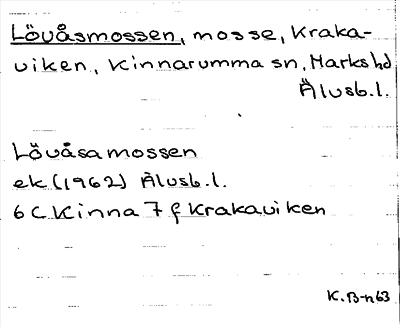 Lövåsmossen, mosse, Kraka-
viken, Kinnarumma sn, Marks hd
Älvsb.l.
Lövåsamossen
ek (1962) Älvsb.l.
6 C Kinna 7 f Krakaviken
K.B-n 63